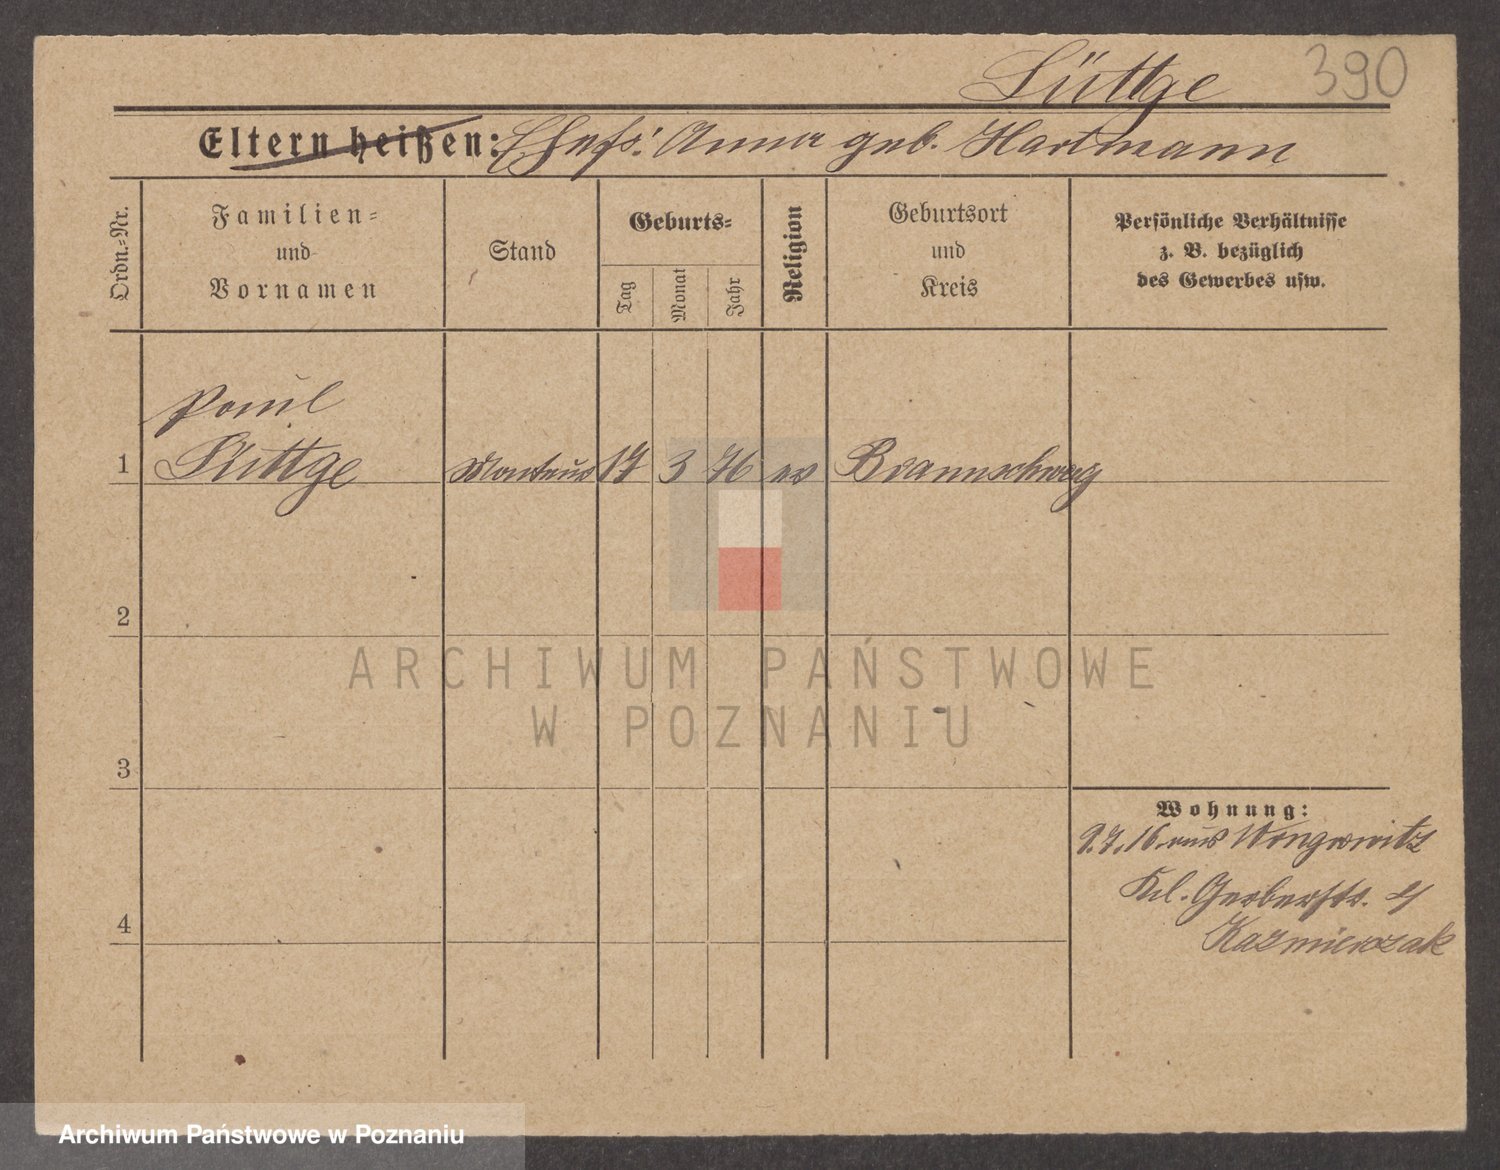 Lüttge 390
Eltern heißen: Ehefr: Anna geb. Hartmann
Ordn.-Nr.
Familien-
und
Vornamen
Stand
Geburts-
Tag
Monat
Jahr
Religion
Geburtsort
und
Kreis
Persönliche Verhältnisse
z. B. bezüglich
des Gewerbes usw.
Paul
1 Lüttge Monteur 17 3 76 ev Braunschweig
2
3
4
Wohnung:
9.7.16 aus Wongrowitz
Kl. Gerberstr. 4
Kazmierzak
ARCHIWUM PAŃSTWOWE
W POZNANIU
Archiwum Państwowe w Poznaniu